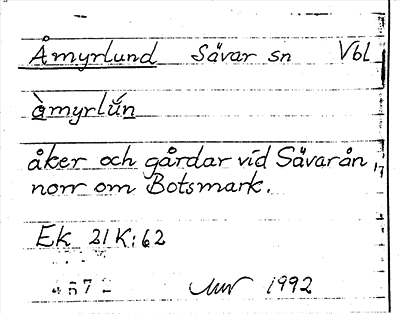 Åmyrlund Sävar sn Vbl
òmyrlŭn
åker och gårdar vid Sävarån,
norr om Botsmark.
Ek 21 K:62
4572 1992